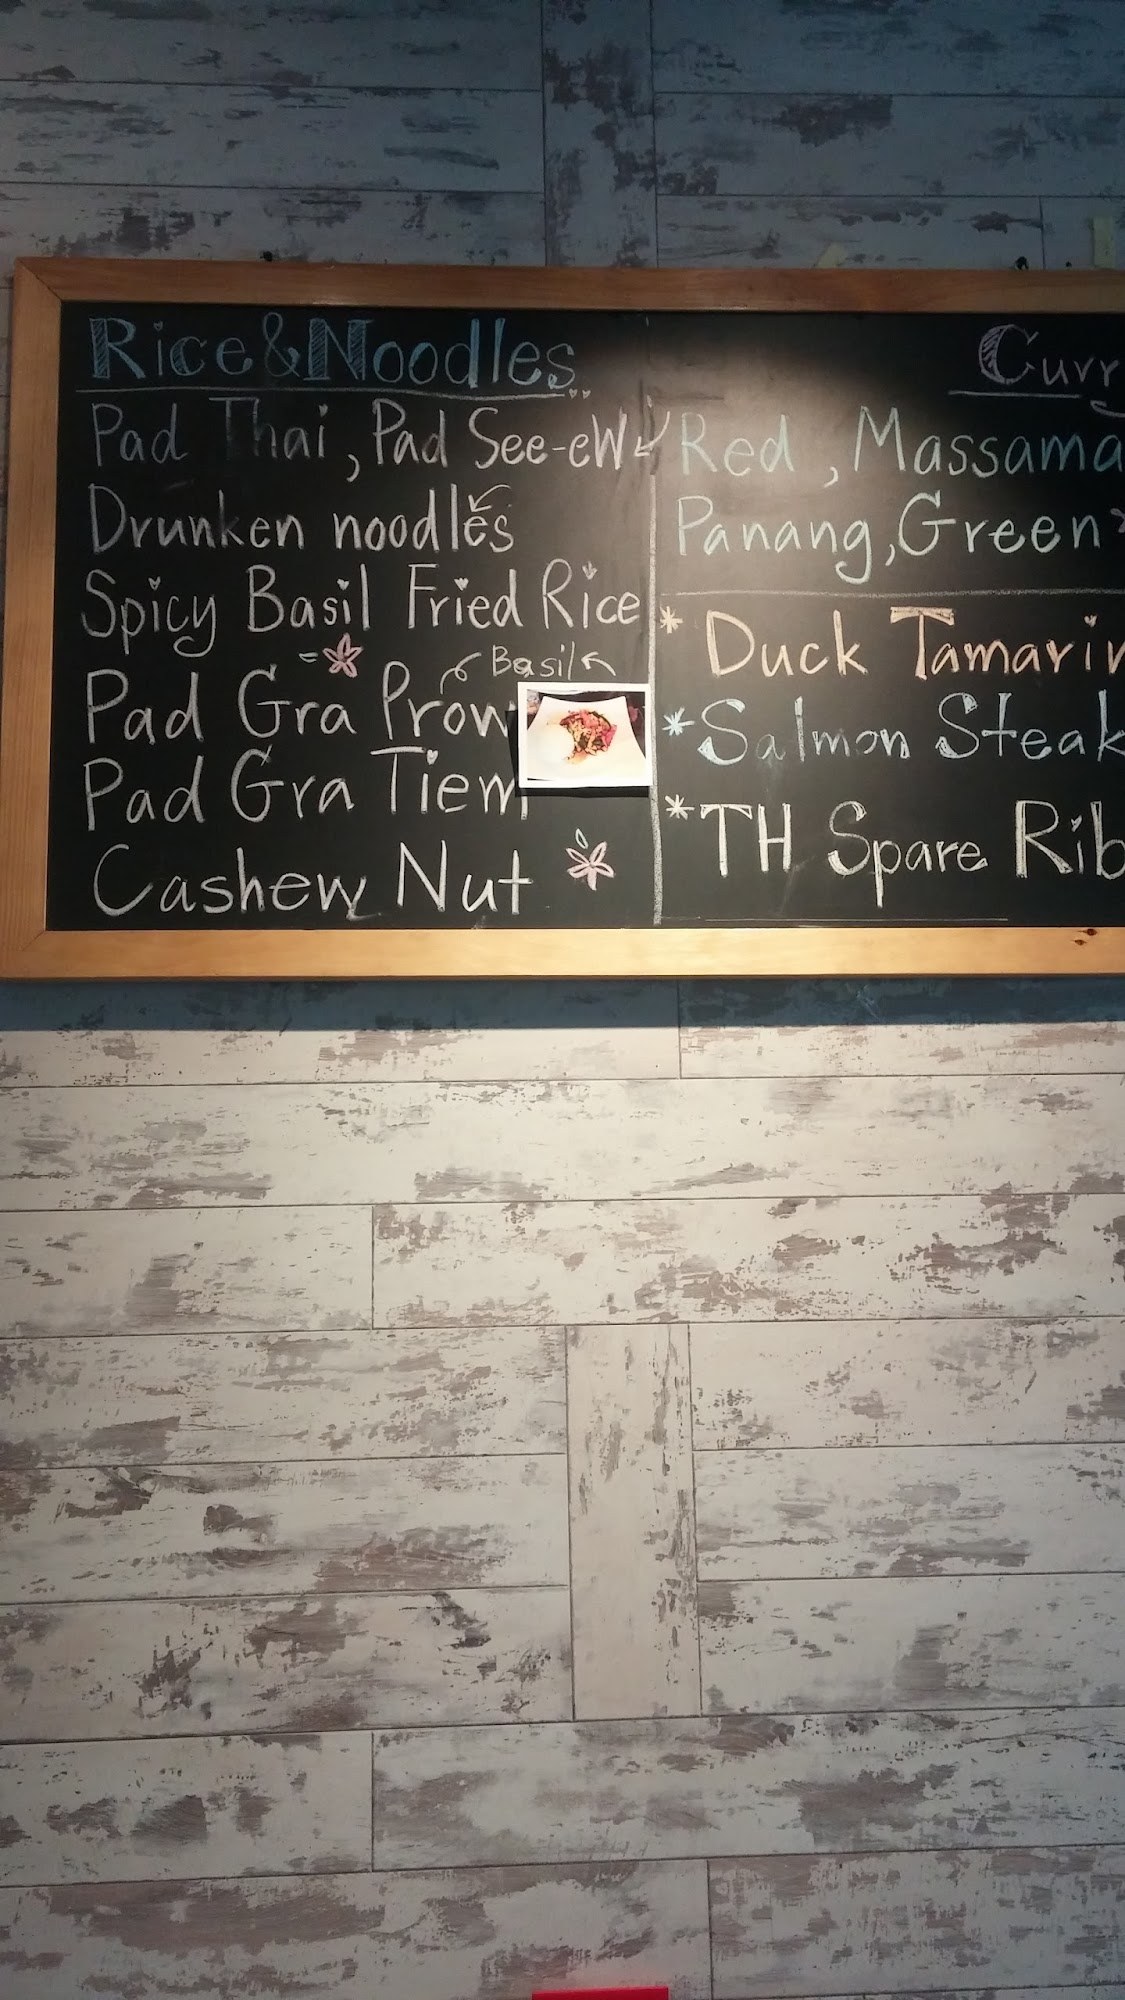 Rice & Noodles
Pad Thai, Pad See-eW
Drunken noodles
Spicy Basil Fried Rice
Basil
Pad Gra Prow
Pad Gra Tiem
Cashew Nut
Curry
Red, Massama
Panang, Green
* Duck Tamarin
* Salmon Steak
* TH Spare Rib